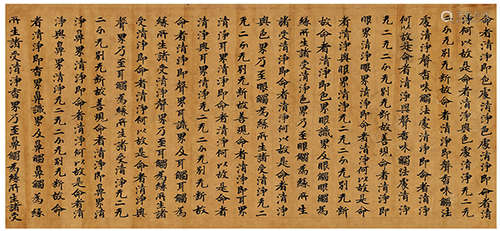 命者清淨即色處清淨色處清淨即命者清
淨何以故是命者清淨與色處清淨无二无
二分无別无斷故命者清淨即聲香味觸法
處清淨聲香味觸法處清淨即命者清淨
何以故是命者清淨與聲香味觸法處清淨
无二无二分无別无斷故善現命者清淨即
眼界清淨眼界清淨即命者清淨何以故是
命者清淨與眼界清淨无二无二分无別无斷
故命者清淨即色界眼識界及眼觸眼觸為
緣所生諸受清淨色界乃至眼觸為緣所生
諸受清淨即命者清淨何以故是命者清淨
與色界乃至眼觸為緣所生諸受清淨无二
无二分无別无斷故善現命者清淨即耳界
清淨耳界清淨即命者清淨何以故是命者
清淨與耳界清淨无二无二分无別无斷故
命者清淨即聲界耳識界及耳觸耳觸為
緣所生諸受清淨聲界乃至耳觸為緣所生諸
受清淨即命者清淨何以故是命者清淨與
聲界乃至耳觸為緣所生諸受清淨无二无
二分无別无斷故善現命者清淨即鼻界清
淨鼻界清淨即命者清淨何以故是命者清
淨與鼻界清淨无二无二分无別无斷故命者清
淨即香界鼻識界及鼻觸鼻觸為緣
所生諸受清淨香界乃至鼻觸為緣所生諸受